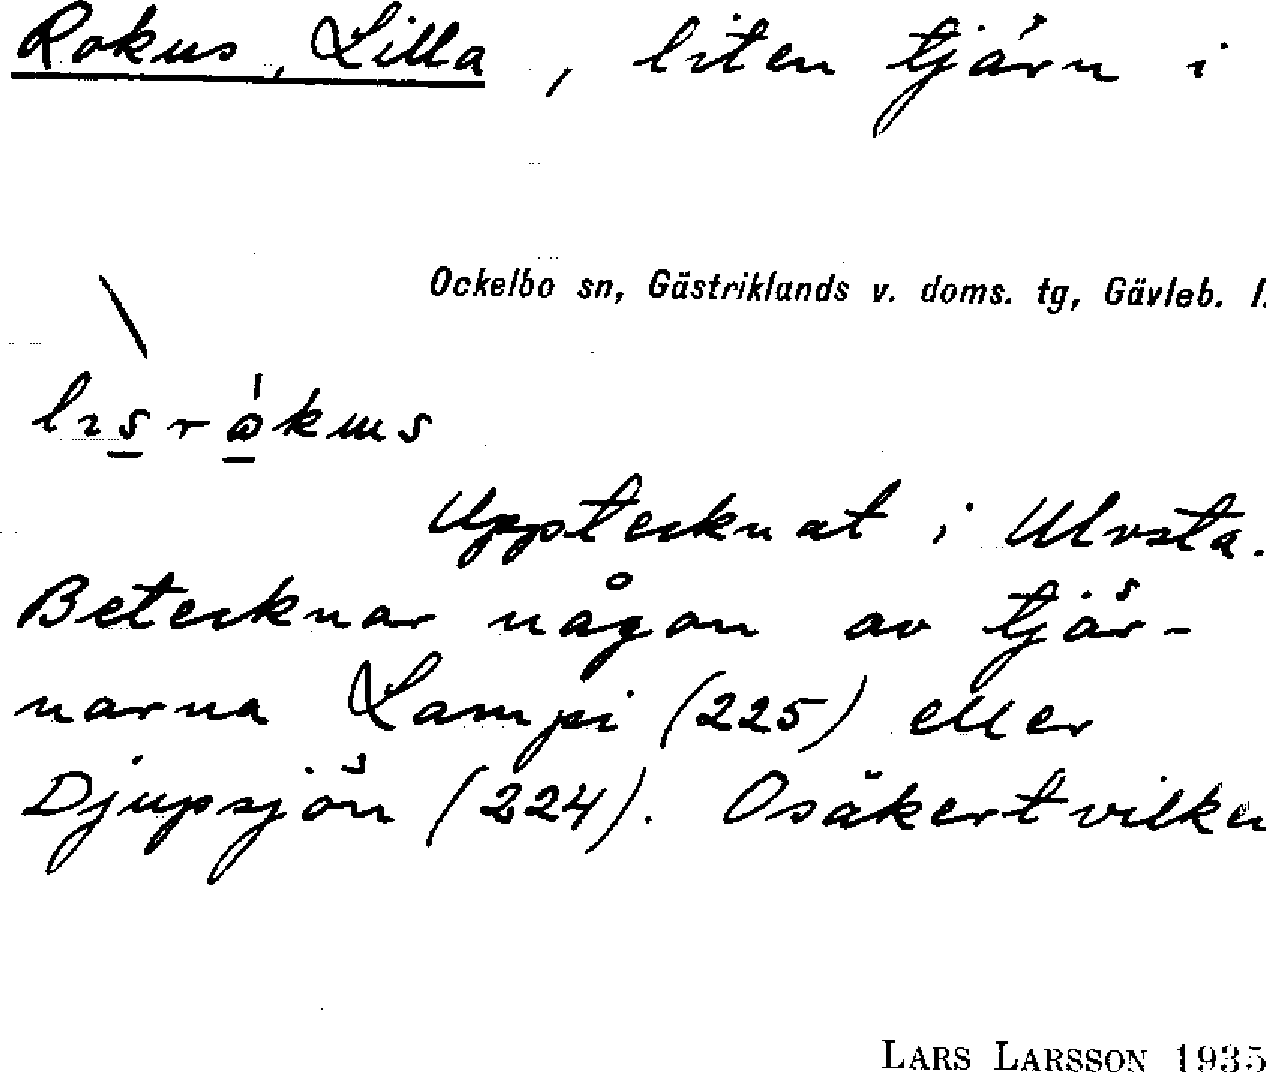 Rokus, Lilla, liten tjärn i
Ockelbo sn, Gästriklands v. doms. tg, Gävleb. l.
Upptecknat i Ulvsta.
Betecknar någon av tjär-
narna Lampi (225) eller
Djupsjön (224). Osäkert vilken
LARS LARSSON 1935